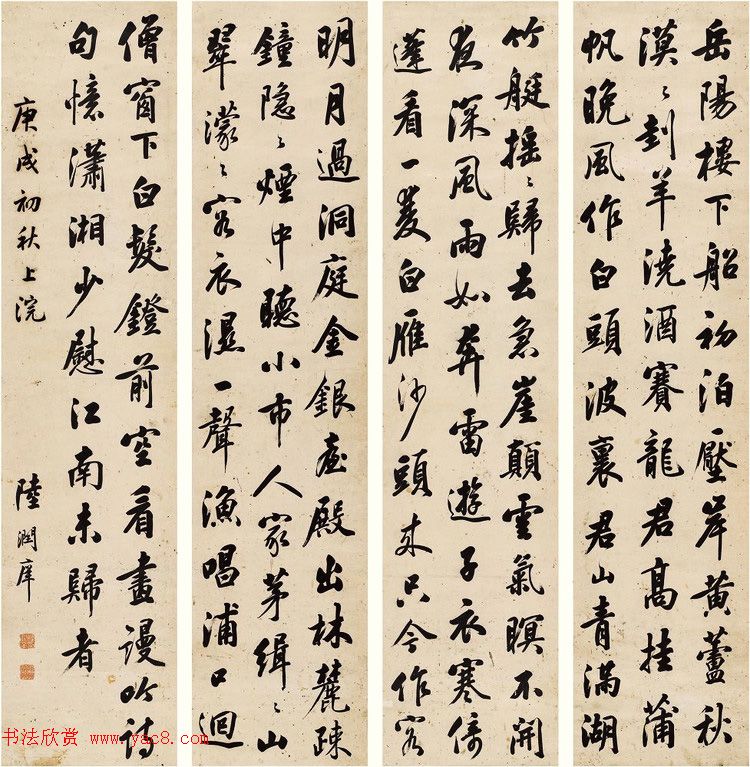 岳陽樓下船初泊壓岸黄蘆秋
漠〻刲羊澆酒賽龍君高挂蒲
帆晚風作白頭波裏君山青滿湖
竹艇摇〻歸去急崖顛雲氣暝不開
夜深風雨如奔雷遊子衣寒倚
蓬看一雙白雁沙頭来只今作客
明月過洞庭金銀臺殿出林麓疎
鐘隐〻煙中聽小市人家茅緝〻山
翠濛〻客衣濕一聲漁唱浦口迴
僧窗下白髮鐙前空看畫謾吟詩
句憶瀟湘少慰江南未歸者
庚戌初秋上浣
陸潤庠
书法欣赏 www.yac8.com